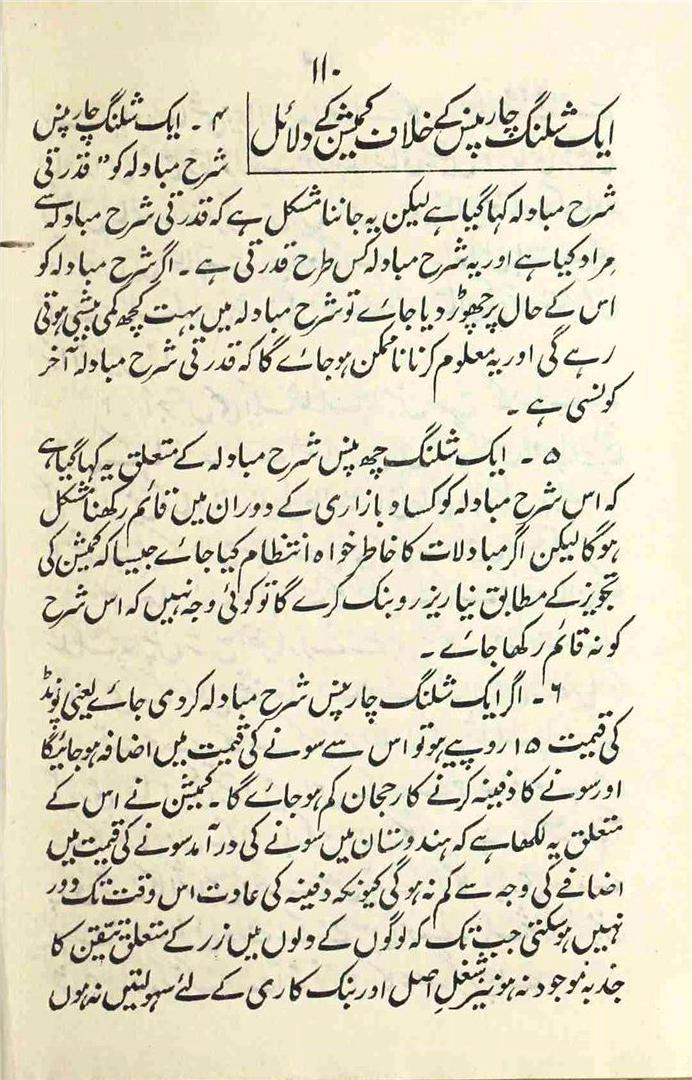 ۱۱۰
ایک شلنگ چار پنس کے خلاف کمیشن کے دلائل
۴ ۔ ایک شلنگ چار پنس
شرح مبادلہ کو " قدرتی
شرح مبادلہ کہا گیا ہے لیکن یہ جاننا مشکل ہے کہ قدرتی شرح مبادلہ سے
مراد کیا ہے اور یہ شرح مبادلہ کس طرح قدرتی ہے ۔ اگر شرح مبادلہ کو
اس کے حال پر چھوڑ دیا جائے تو شرح مبادلہ میں بہت کچھ کمی بیشی ہوتی
رہے گی اور یہ معلوم کرنا ناممکن ہو جائے گا کہ قدرتی شرح مبادلہ آخر
کونسی ہے ۔
۵ ۔ ایک شلنگ چھ پنس شرح مبادلہ کے متعلق یہ کہا گیا ہے
کہ اس شرح مبادلہ کو کساد بازاری کے دوران میں قائم رکھنا مشکل
ہو گا لیکن اگر مبادلات کا خاطر خواہ انتظام کیا جائے جیسا کہ کمیشن کی
تجویز کے مطابق نیا ریزرو بنک کرے گا تو کوئی وجہ نہیں کہ اس شرح
کو نہ قائم رکھا جائے ۔
۶ ۔ اگر ایک شلنگ چار پنس شرح مبادلہ کر دی جائے یعنی پونڈ
کی قیمت ۱۵ روپیے ہو تو اس سے سونے کی قیمت میں اضافہ ہو جائیگا
اور سونے کا دفینہ کرنے کا رجحان کم ہو جائے گا ۔ کمیشن نے اس کے
متعلق یہ لکھا ہے کہ ہندوستان میں سونے کی درآمد سونے کی قیمت میں
اضافے کی وجہ سے کم نہ ہو گی کیونکہ دفینہ کی عادت اس وقت تک دور
نہیں ہو سکتی جب تک کہ لوگوں کے دلوں میں زر کے متعلق تیقن کا
جذبہ موجود نہ ہو نیز شغل اصل اور بنک کاری کے لئے سہولتیں نہ ہوں